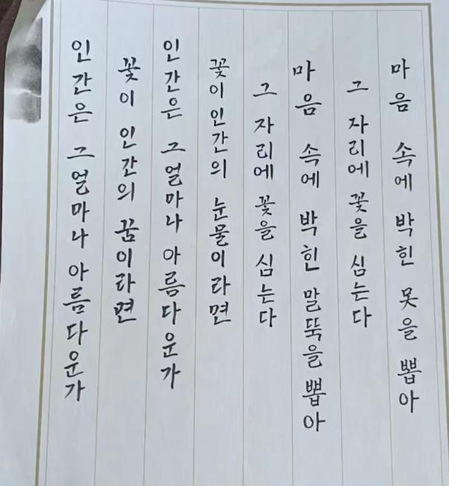 마음 속에 박힌 못을 뽑아
그 자리에 꽃을 심는다
마음 속에 박힌 말뚝을 뽑아
그 자리에 꽃을 심는다
꽃이 인간의 눈물이라면
인간은 그 얼마나 아름다운가
꽃이 인간의 꿈이라면
인간은 그 얼마나 아름다운가